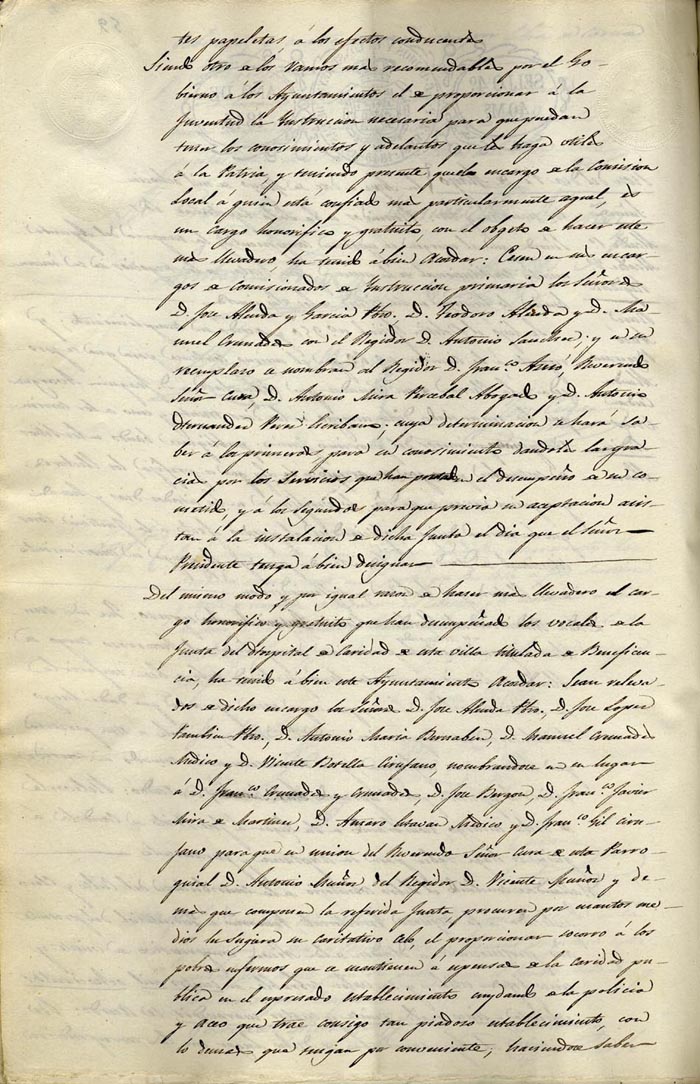 tes papeletas, á los efectos conducentes
Siendo otro de los ramos mas recomendables por el Go-
bierno á los Ayuntamientos el de proporcionar á la
Juventud la Instruccion necesaria para que puedan
tener los conosimientos y adelantos que les haga utiles
á la Patria, y teniendo presente que el encargo de la Comision
Local á quien está confiado mas particularmente aquel, es
un cargo honorifico y gratuito, con el objeto de hacer este
mas llevadero ha tenido á bien Acordar: Cesen en sus encar-
gos de comisionados de Instruccion primaria los Señores
D. Jose Alenda y Garcia Pbro. D. Teodoro Alenda y D. Ma-
nuel Cremades con el Regidor D. Antonio Sanchez; y en su
reemplazo se nombran al Regidor D. Franco. Aznó, Reverendo
Señor Cura, D. Antonio Mira Percebal Abogado y D. Antonio
Hernandez Perez Escribano; cuya determinacion se hará sa-
ber á los primeros para su conosimiento dandoles las gra-
cias por los servicios que han prestado en el desempeño de su co-
metido, y á los segundos para que previo su aceptacion asis-
tan á la instalacion de dicha Junta el dia que el Señor
Presidente tenga á bien designar
Del mismo modo y por igual razon de hacer mas llevadero el car-
go honorifico y gratuito que han desempeñado los vocales de la
Junta del Hospital de Caridad de esta villa titulada de Beneficen-
cia, ha tenido á bien este Ayuntamiento Acordar: Sean releva-
dos de dicho encargo los Señores D. Jose Alenda Pbro., D. Jose Lopez
tambien Pbro., D. Antonio Maria Bernabeu, D. Manuel Cremades
Medico y D. Vicente Botella Cirujano, nombrandose en su lugar
á D. Franco. Cremades y Cremades, D. Jose Burgos, D. Franco. Javier
Mira de Martinez, D. Medico y D. Franco. Gil ciru-
jano para que en union del Reverendo Señor Cura de esta Parro-
quial D. Antonio Muñoz del Regidor D. Vicente Muñoz y de-
mas que componen la referida Junta procuren por cuantos me-
dios les sugiera su caritativo celo, el proporcionar socorro á los
pobres enfermos que se mantienen á espensas de la caridad pu-
blica en el espresado establecimiento cuydando de la policia
y aceo que trae consigo tan piadoso establecimiento, con
lo demas que tengan por conveniente, haciendose saber